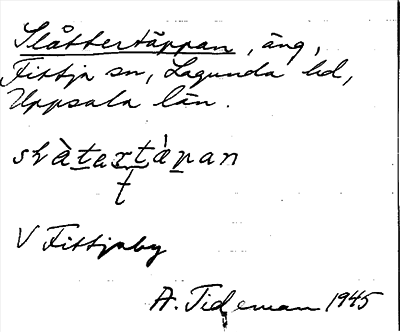 Slåttertäppan, äng,
Fittja sn, Lagunda hd,
Uppsala län.
slàtertàpan
t
V Fittjaby
A. Tideman 1945